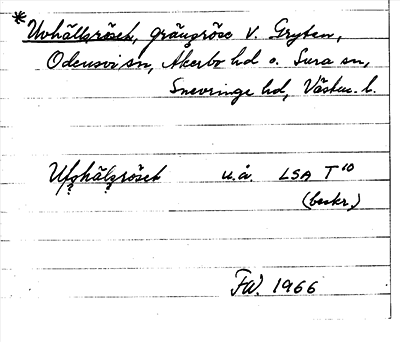 *Uvhällsröset, gränsröse v. Gryten,
Odensvi sn, Åkerbo hd o. Sura sn,
Snevringe hd, Västm. l.
Ufzhälzröset u.å. LSA T¹⁰
(beskr.)
FW. 1966